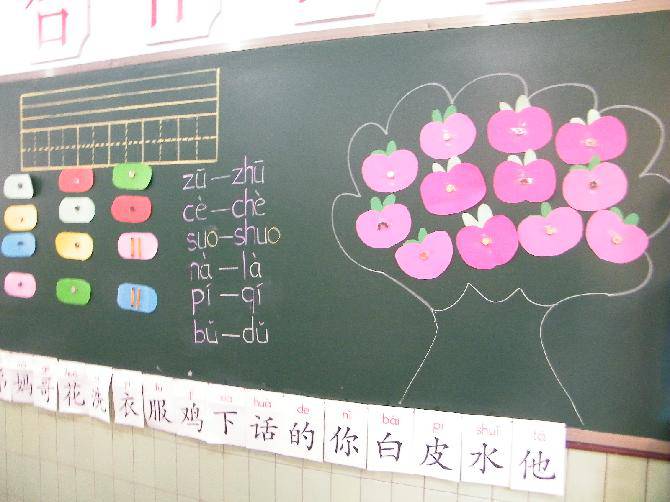 zū—zhū
cè—chè
suo—shuo
nà—là
pí—qí
bǔ—dǔ
妈 哥 花 洗 衣 服 鸡 下 话 的 你 白 皮 水 他
huà de nǐ bái pí shuǐ tā